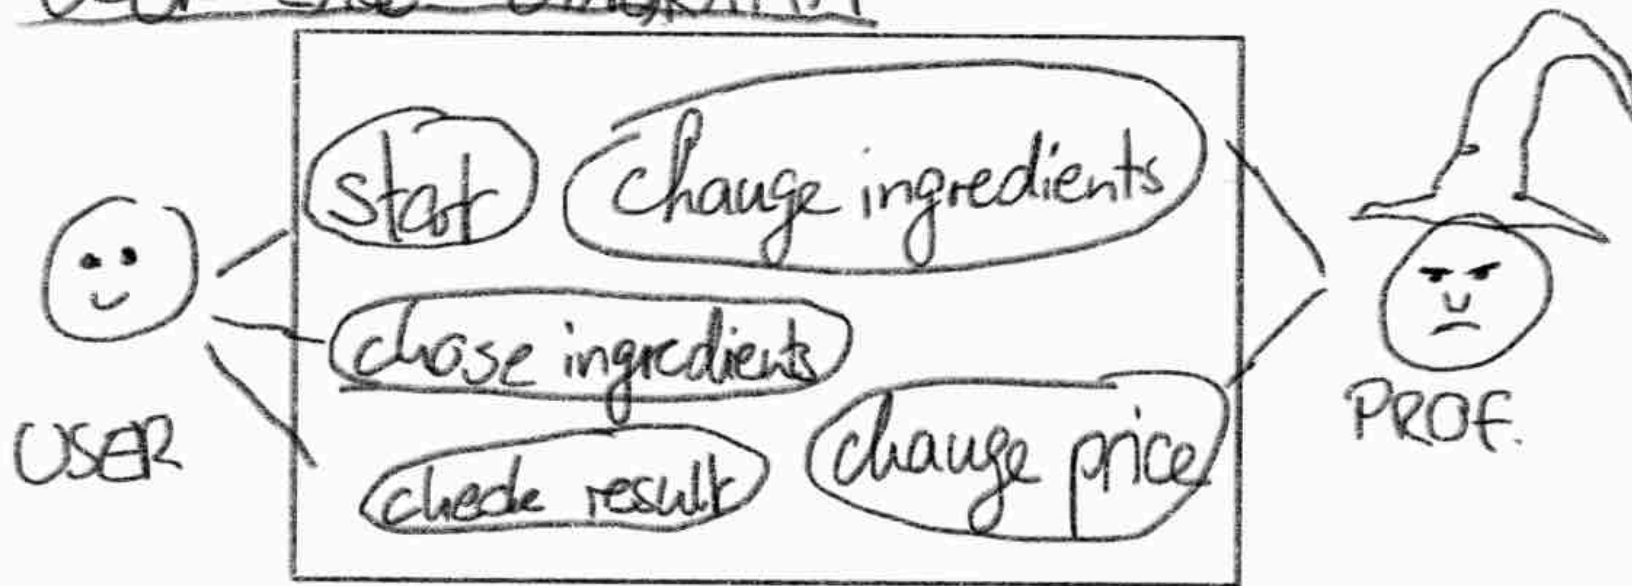 start
change ingredients
chose ingredients
USER
check result
change price
PROF.